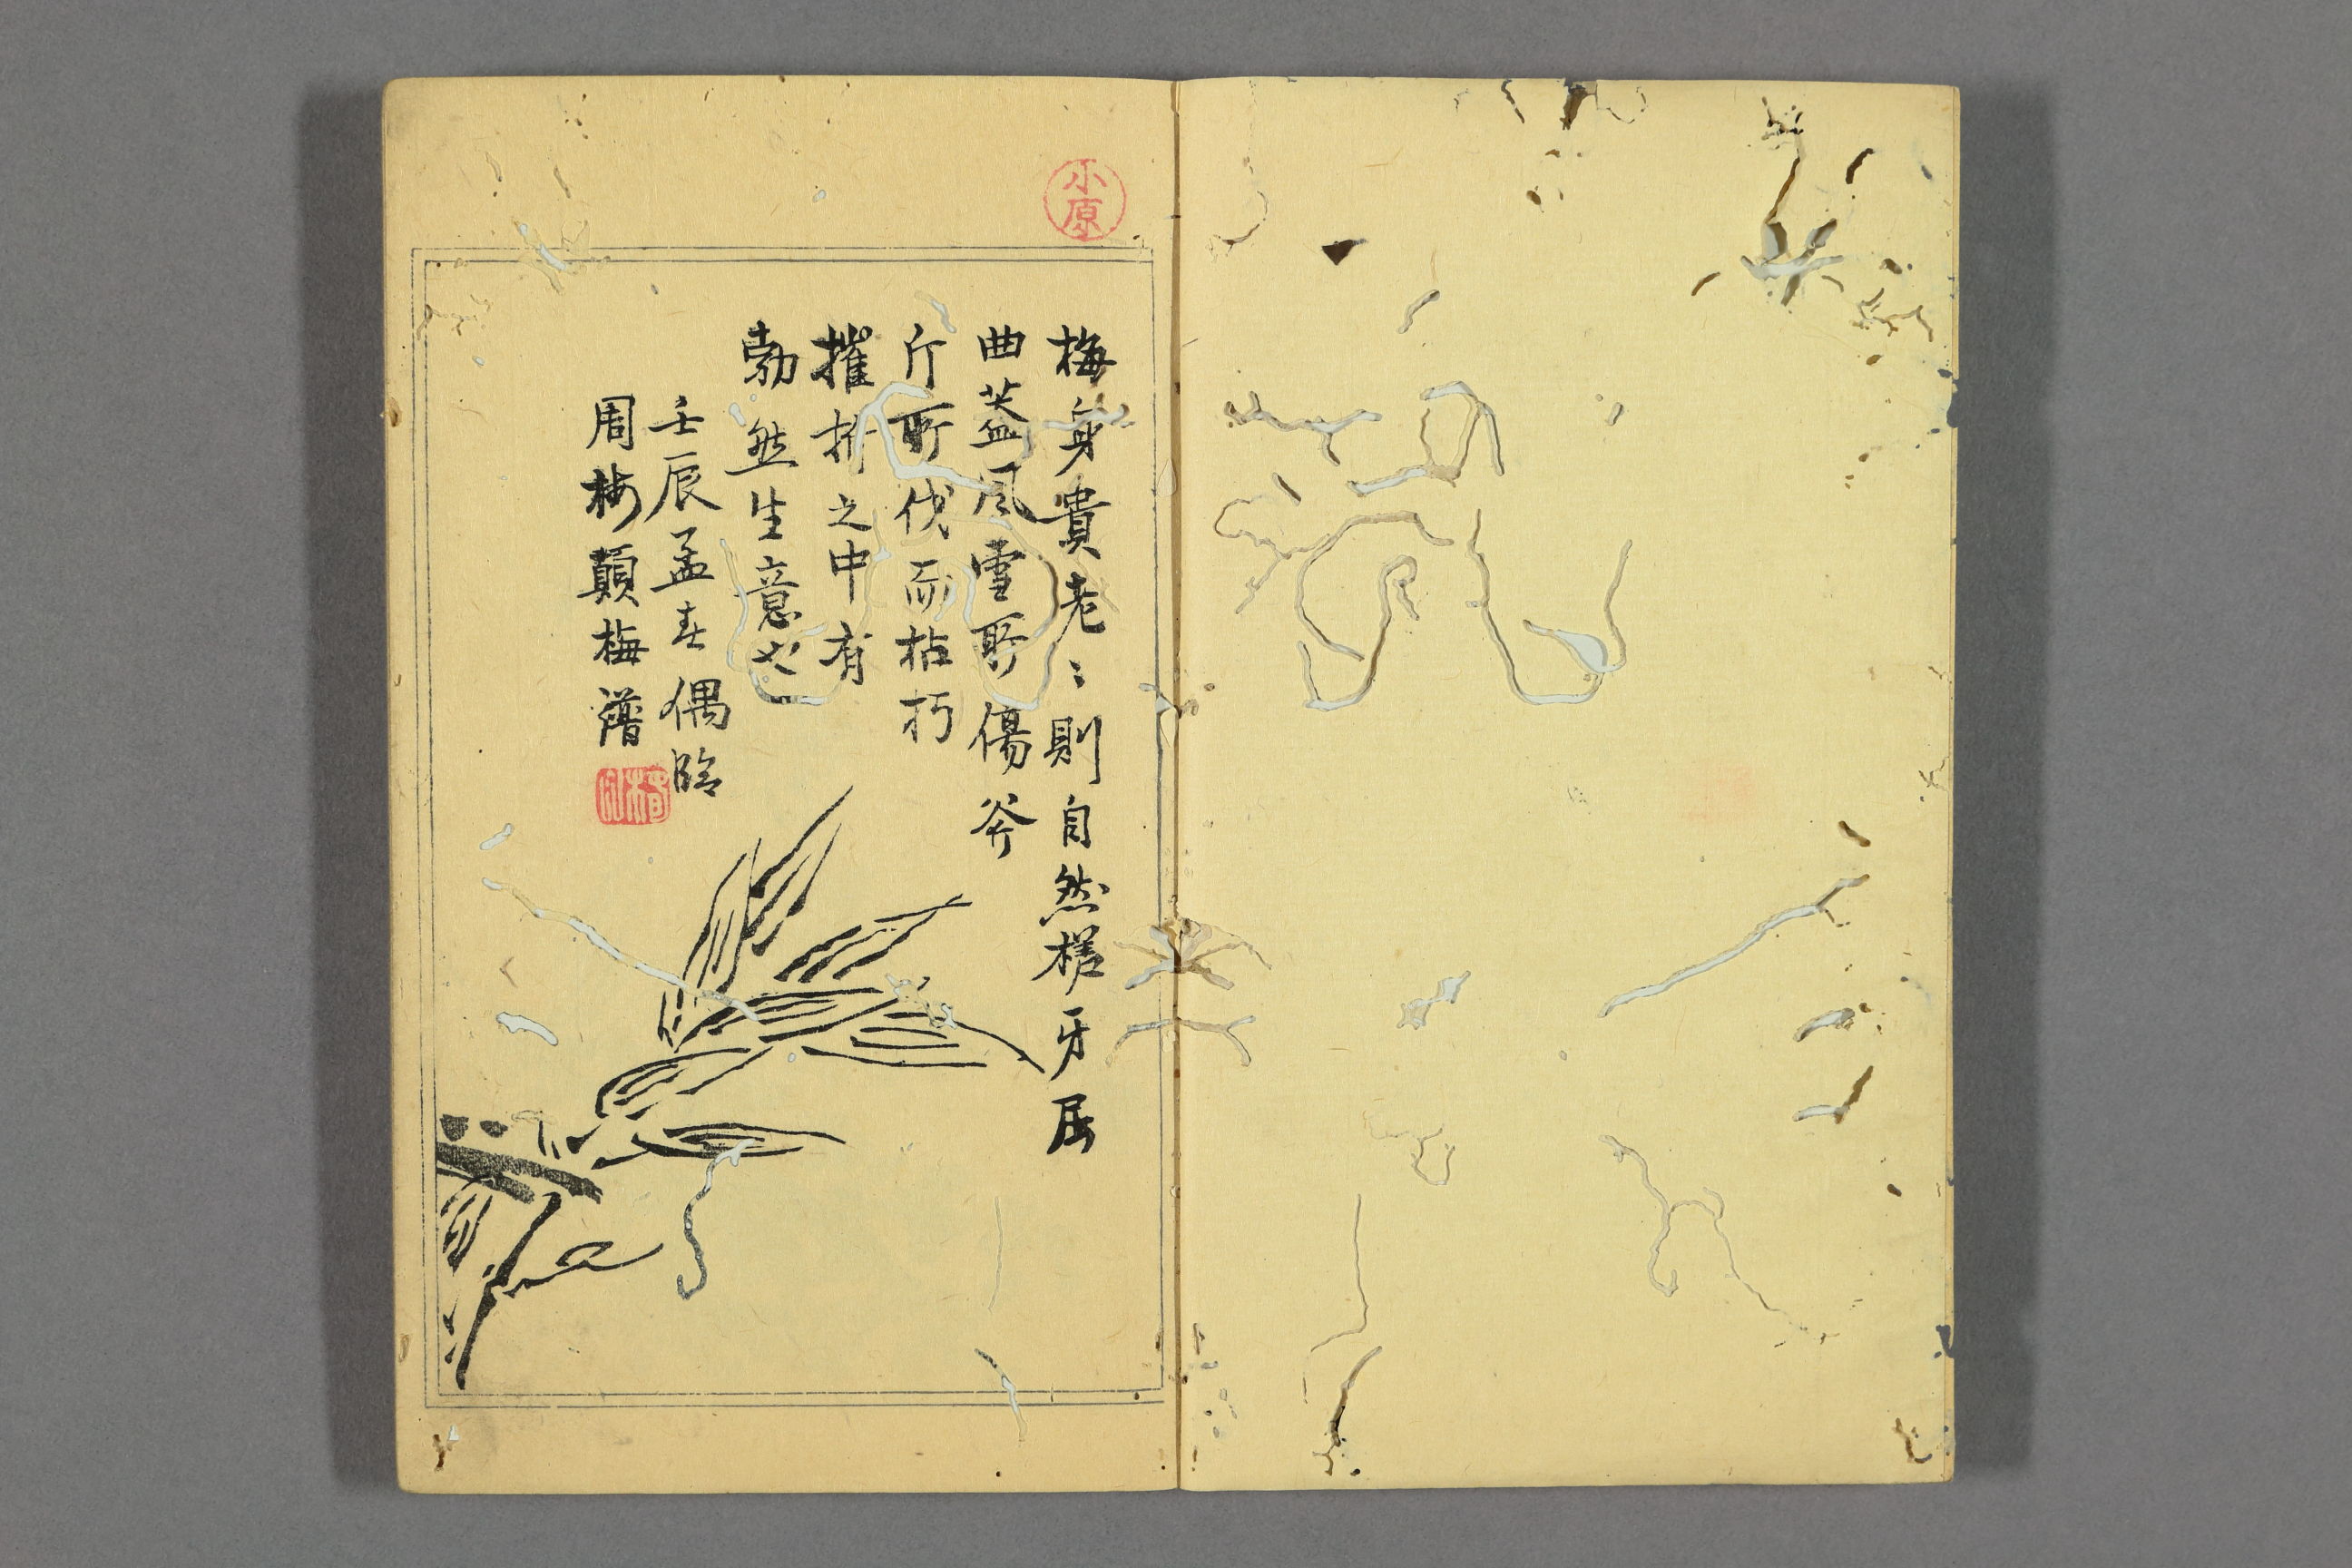 小原
梅身貴老〻則自然槎牙屈
曲蓋風雪所傷斧
斤所伐而枯朽
摧折之中有
勃然生意也
壬辰孟春偶臨
周梅顛梅譜